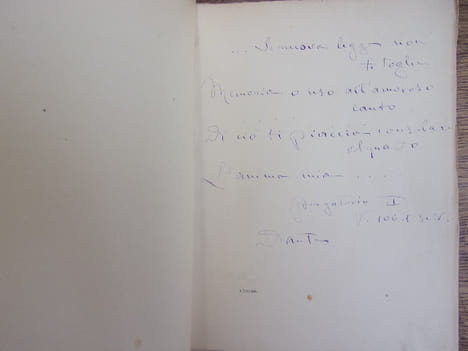 ... Se nuova legge non
ti toglie
Memoria o uso all'amoroso
canto
Di ciò ti piaccia consolare
alquanto
L'anima mia ....
Purgatorio II
V. 106 e
Dante